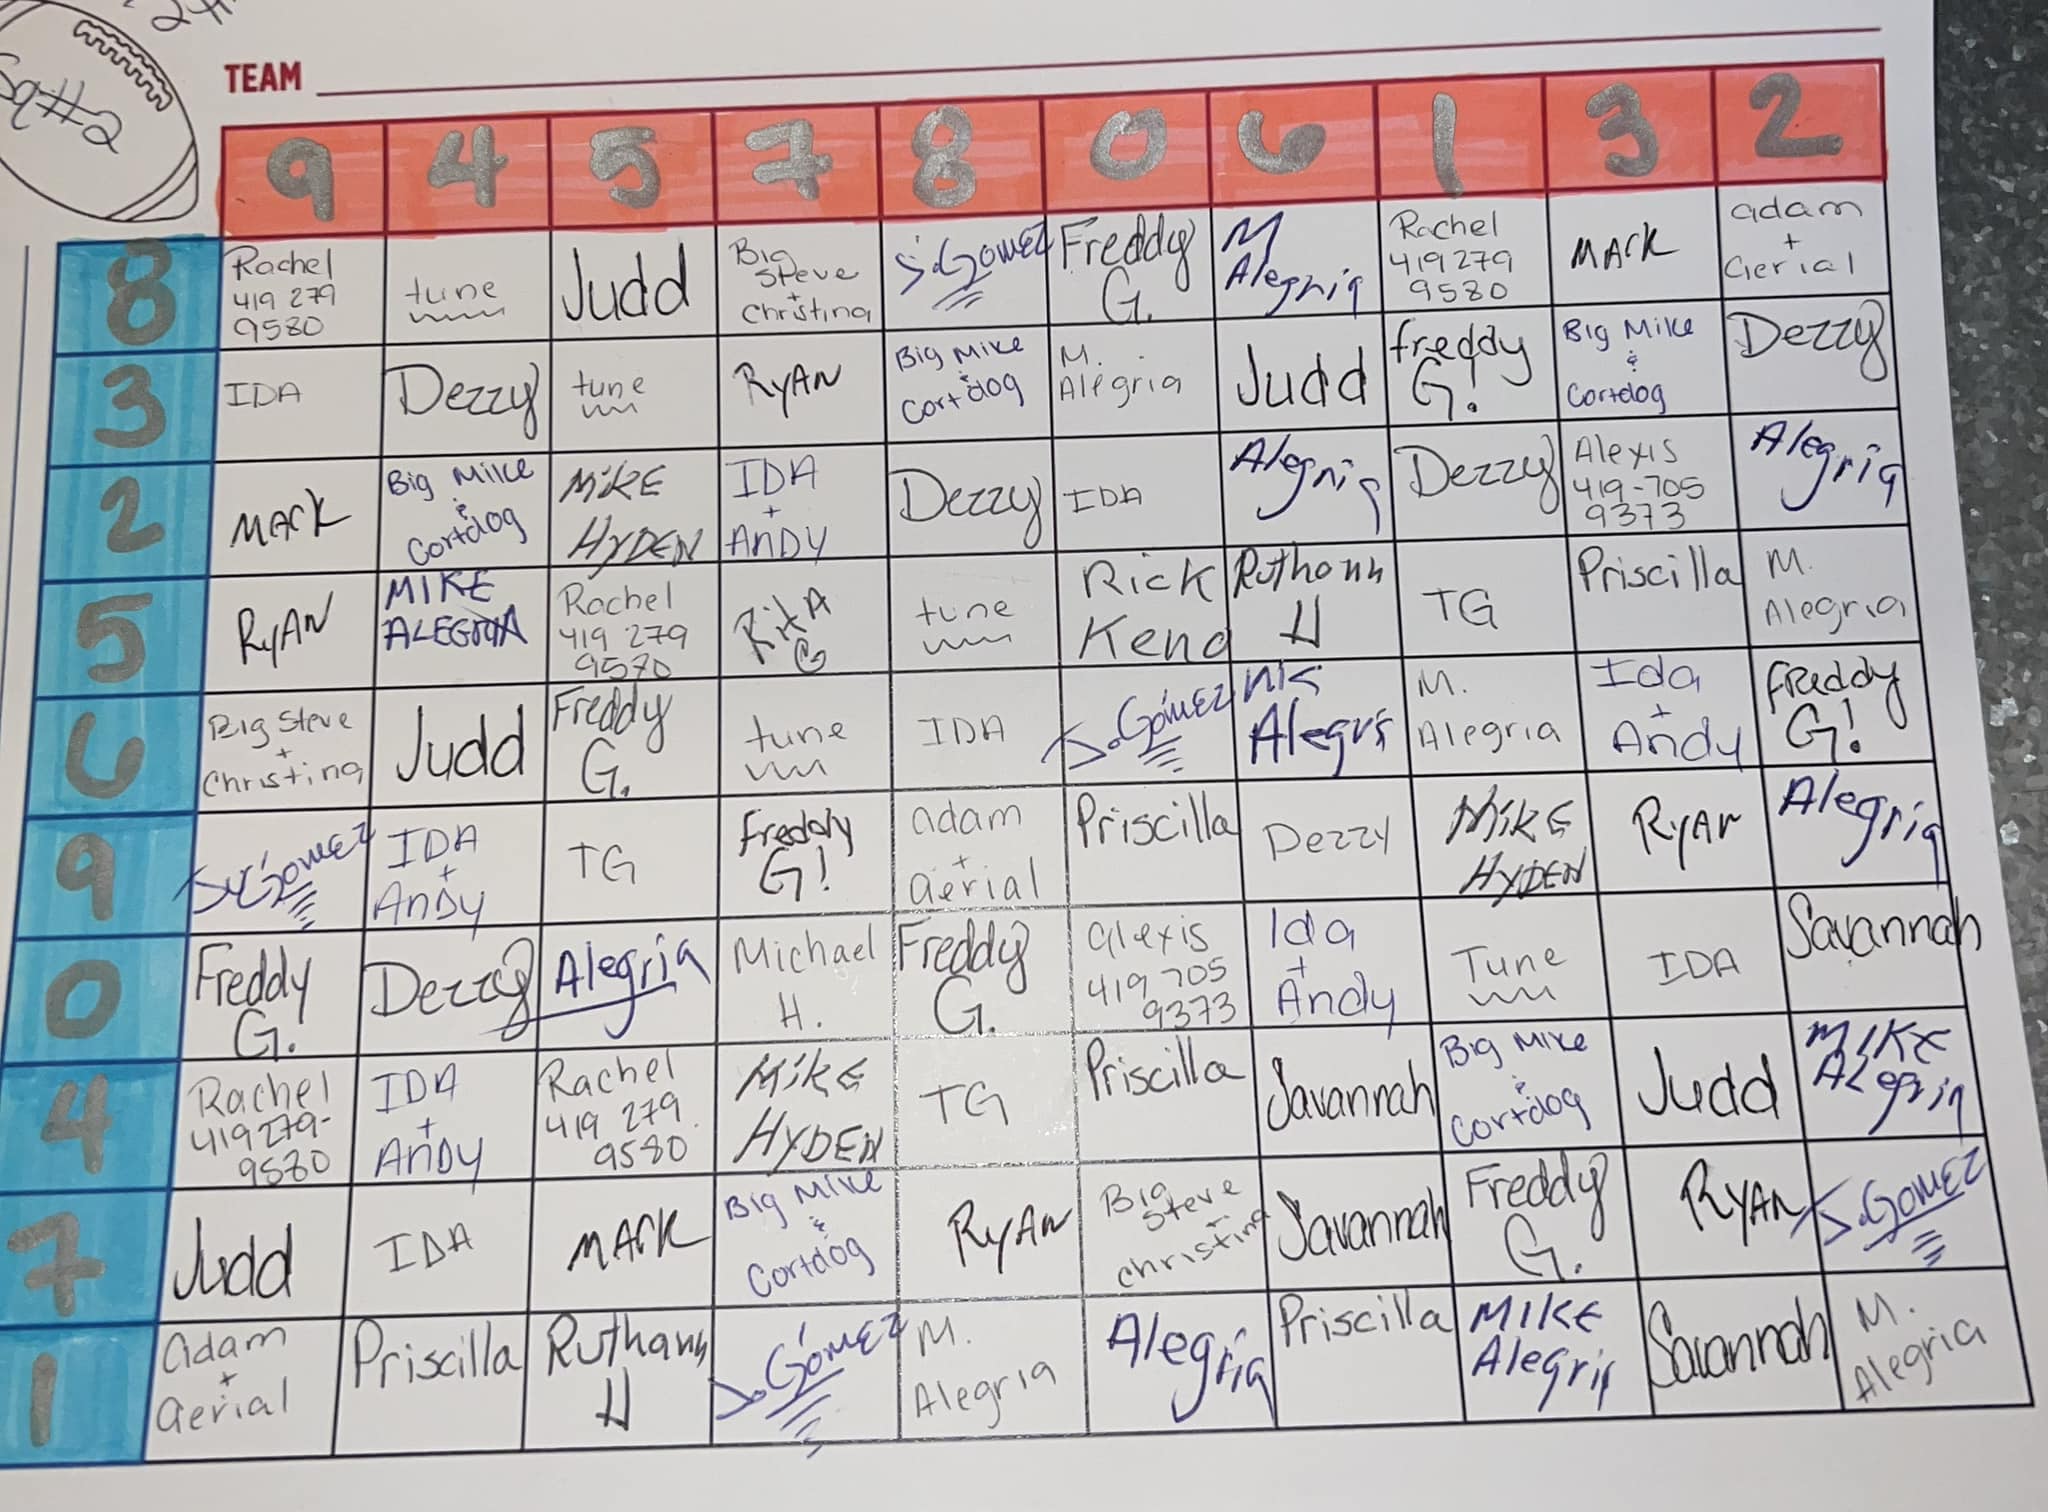 Sq#2
TEAM
9 4 5 7 8 0 6 1 3 2
8
Rachel
419 279
9580
tune
Judd
Big
Steve
+
Christina
S.Gomez
Freddy
G.
M
Alegria
Rachel
419 279
9580
MARK
adam
+
aerial
3
IDA
Dezzy
tune
RYAN
Big Mike
&
Cortdog
M.
Alegria
Judd
freddy
G!
Big Mike
&
Cortdog
Dezzy
2
MARK
Big Mike
&
Cortdog
MIKE
HYDEN
IDA
+
ANDY
Dezzy
IDA
Alegria
Dezzy
Alexis
419-705
9373
Alegria
5
RYAN
MIKE
ALEGRIA
Rachel
419 279
9570
RitA
G
tune
Rick
Keno
Ruthann
H
TG
Priscilla
M.
Alegria
6
Big Steve
+
Christina
Judd
Freddy
G.
tune
IDA
S.Gómez
Alegria
M.
Alegria
Ida
+
Andy
freddy
G!
9
S.Gómez
IDA
+
Andy
TG
freddy
G!
adam
+
aerial
Priscilla
Dezzy
MIKE
HYDEN
RYAN
Alegria
0
Freddy
G.
Dezzy
Alegria
Michael
H.
Freddy
G.
alexis
419 705
9373
Ida
+
Andy
Tune
IDA
Savannah
4
Rachel
419 279-
9580
IDA
+
ANDY
Rachel
419 279
9580
MIKE
HYDEN
TG
Priscilla
Savannah
Big Mike
&
Cortdog
Judd
MIKE
Alegria
7
Judd
IDA
MARK
Big Mike
&
Cortdog
RYAN
Big
Steve
+
christina
Savannah
Freddy
G.
RYAN
S.Gomez
1
adam
+
aerial
Priscilla
Ruthann
H
S.Gómez
M.
Alegria
Alegria
Priscilla
MIKE
Alegria
Savannah
M.
Alegria